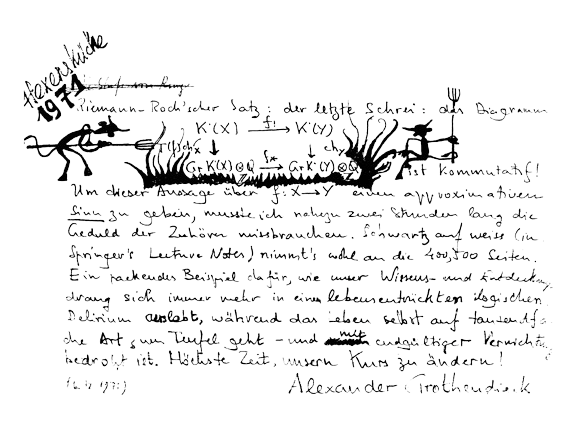 Hexenküche
1971
Riemann-Roch'scher Satz: der letzte Schrei: das Diagramm
K˙(X) f! → K˙(Y)
↓ ch_Y ↓
Gr K(X)⊗Q f* → Gr K(Y)⊗Q
ist kommutatif!
Um dieser Aussage über f: X → Y einen approximativen
Sinn zu geben, musste ich nahezu zwei Stunden lang die
Geduld der Zuhörer missbrauchen. Schwartz auf weiss (in
Springer's Lecture Notes) nimmt's wohl an die 400, 500 Seiten.
Ein packendes Beispiel dafür, wie unser Wissens- und Entdeckungs
drang sich immer mehr in einem lebensentrückten logischen
Delirium auslebt, während das Leben selbst auf tausendfa
che Art zum Teufel geht - und mit endgültiger Vernichtung
bedroht ist. Höchste Zeit, unsern Kurs zu ändern!
1971)
Alexander Grothendieck